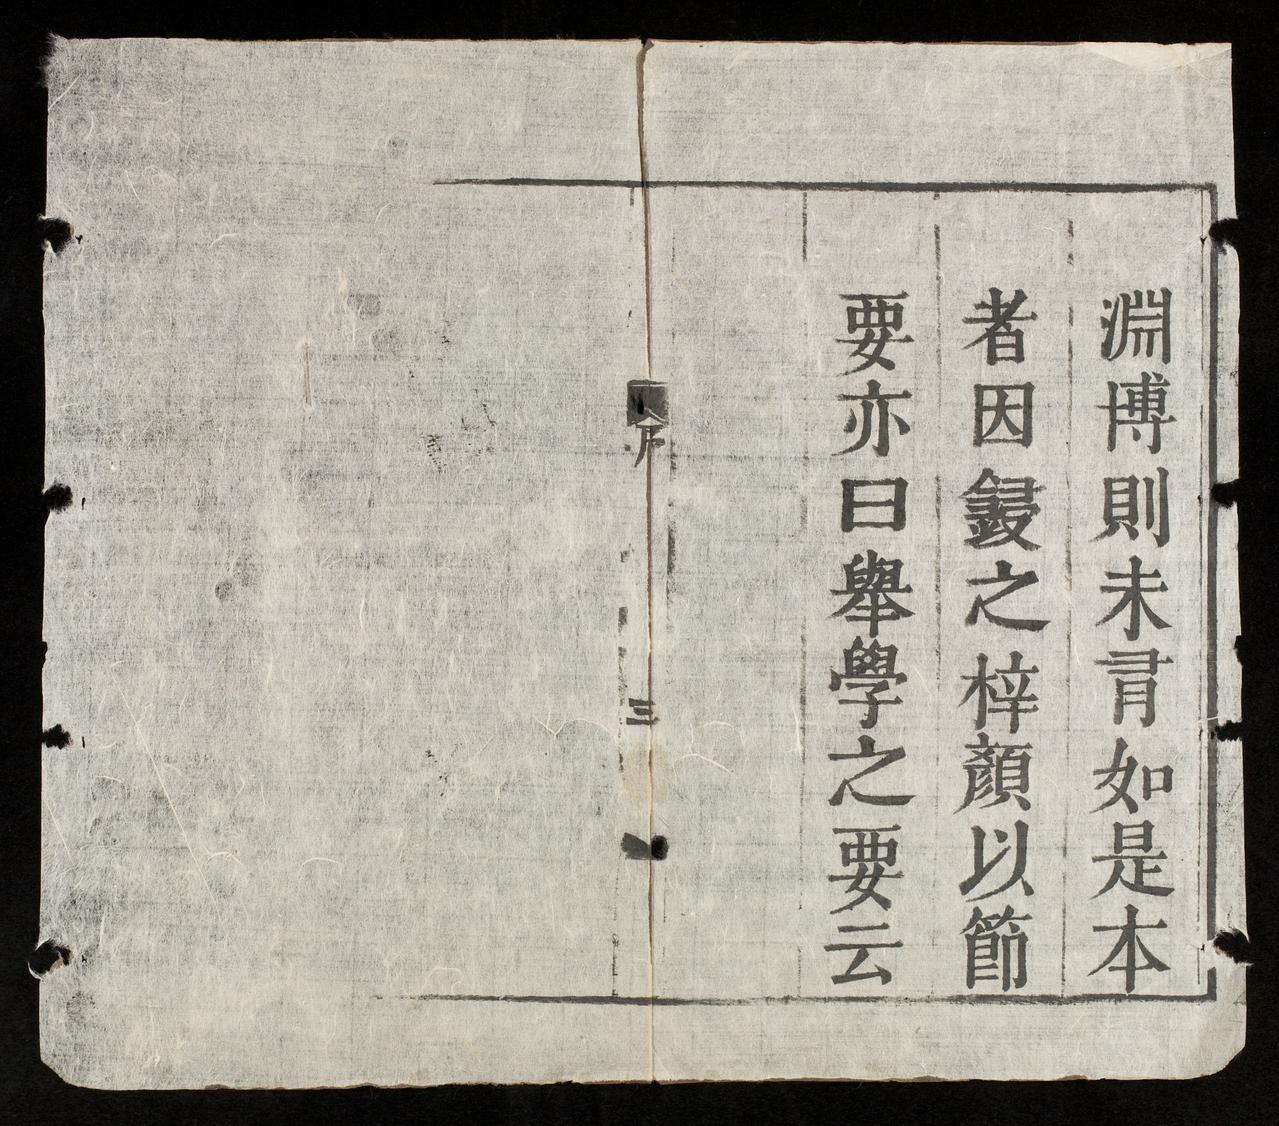 淵博則未有如是本
者因鋟之梓顏以節
要亦曰舉學之要云
序
三